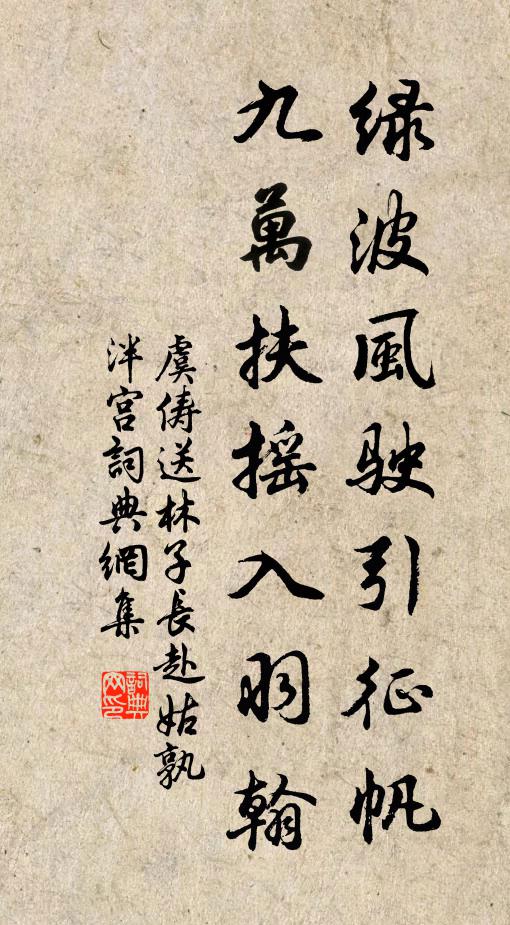 绿波風駛引征帆
九萬扶搖入羽翰
虞俦送林子長赴姑孰
泮宫詞典網集
詞典
网印